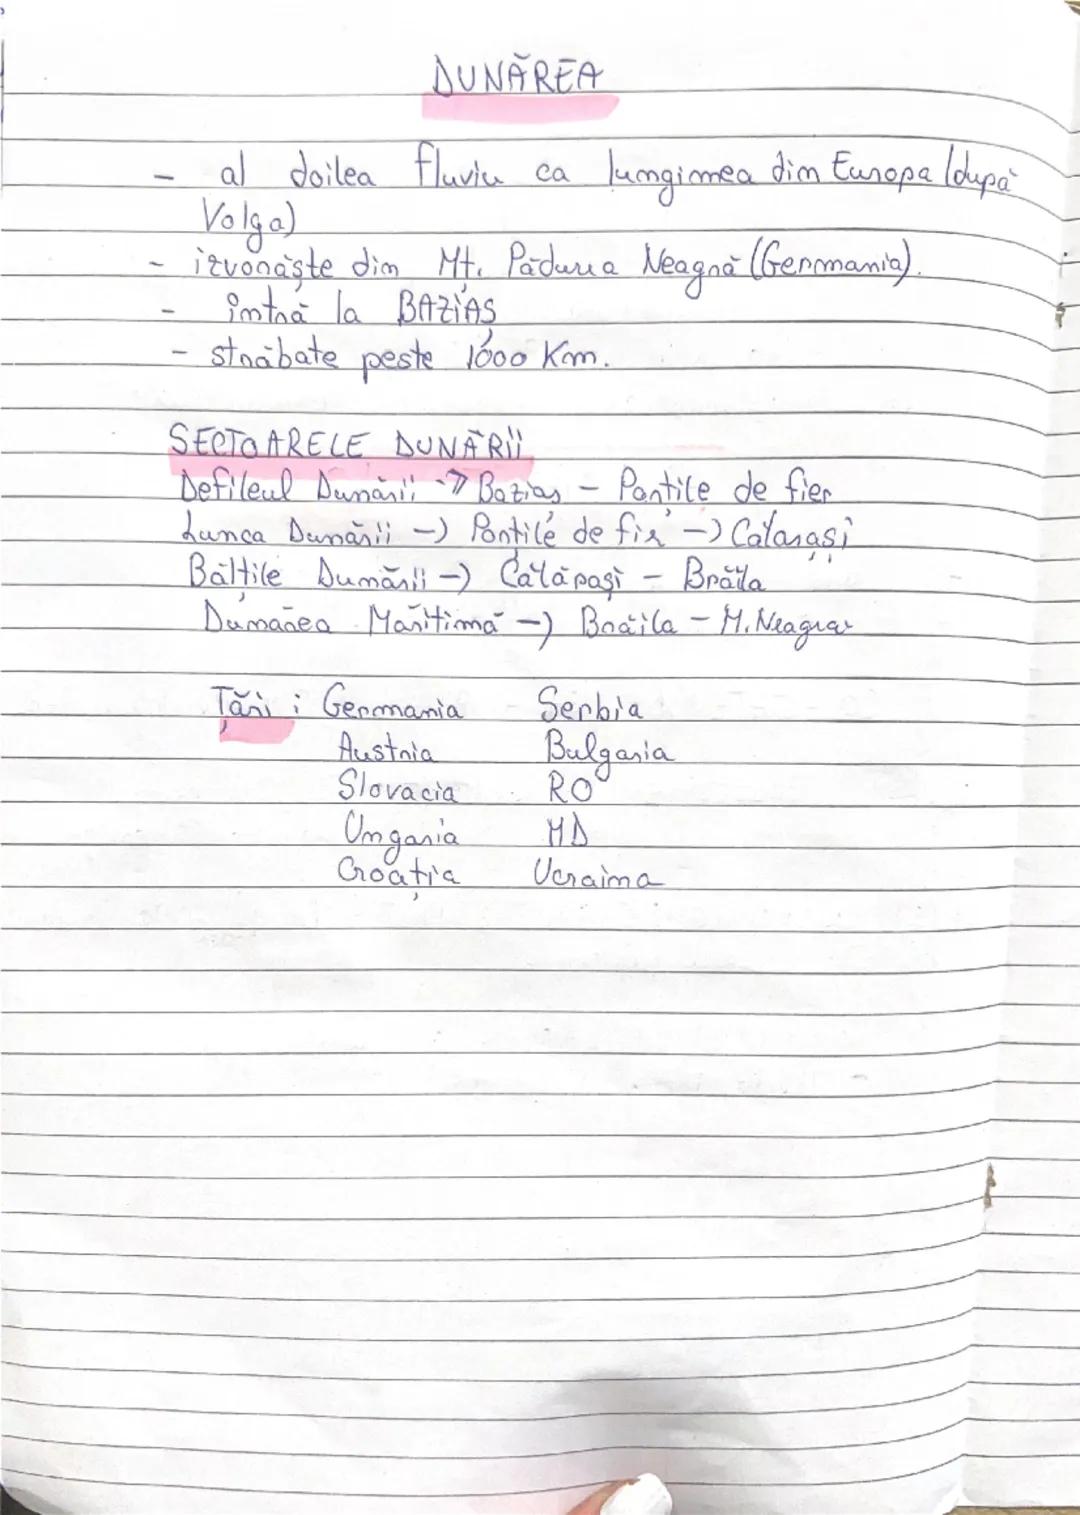 DUNĂREA
- al doilea fluviu ca lungimea din Europa (după
Volga)
- izvorăște din Mt. Pădurea Neagră (Germania).
- intră la BAZIAȘ
- străbate peste 1000 Km.
SECTOARELE DUNĂRII
Defileul Dunării -> Baziaș - Porțile de fier
Lunca Dunării -> Porțile de fir -> Călărași
Bălțile Dunării -> Călărași - Brăila
Dunărea Maritimă -> Brăila - M. Neagra
Țări : Germania Serbia
Austria Bulgaria
Slovacia RO
Ungaria MD
Croația Ucraina